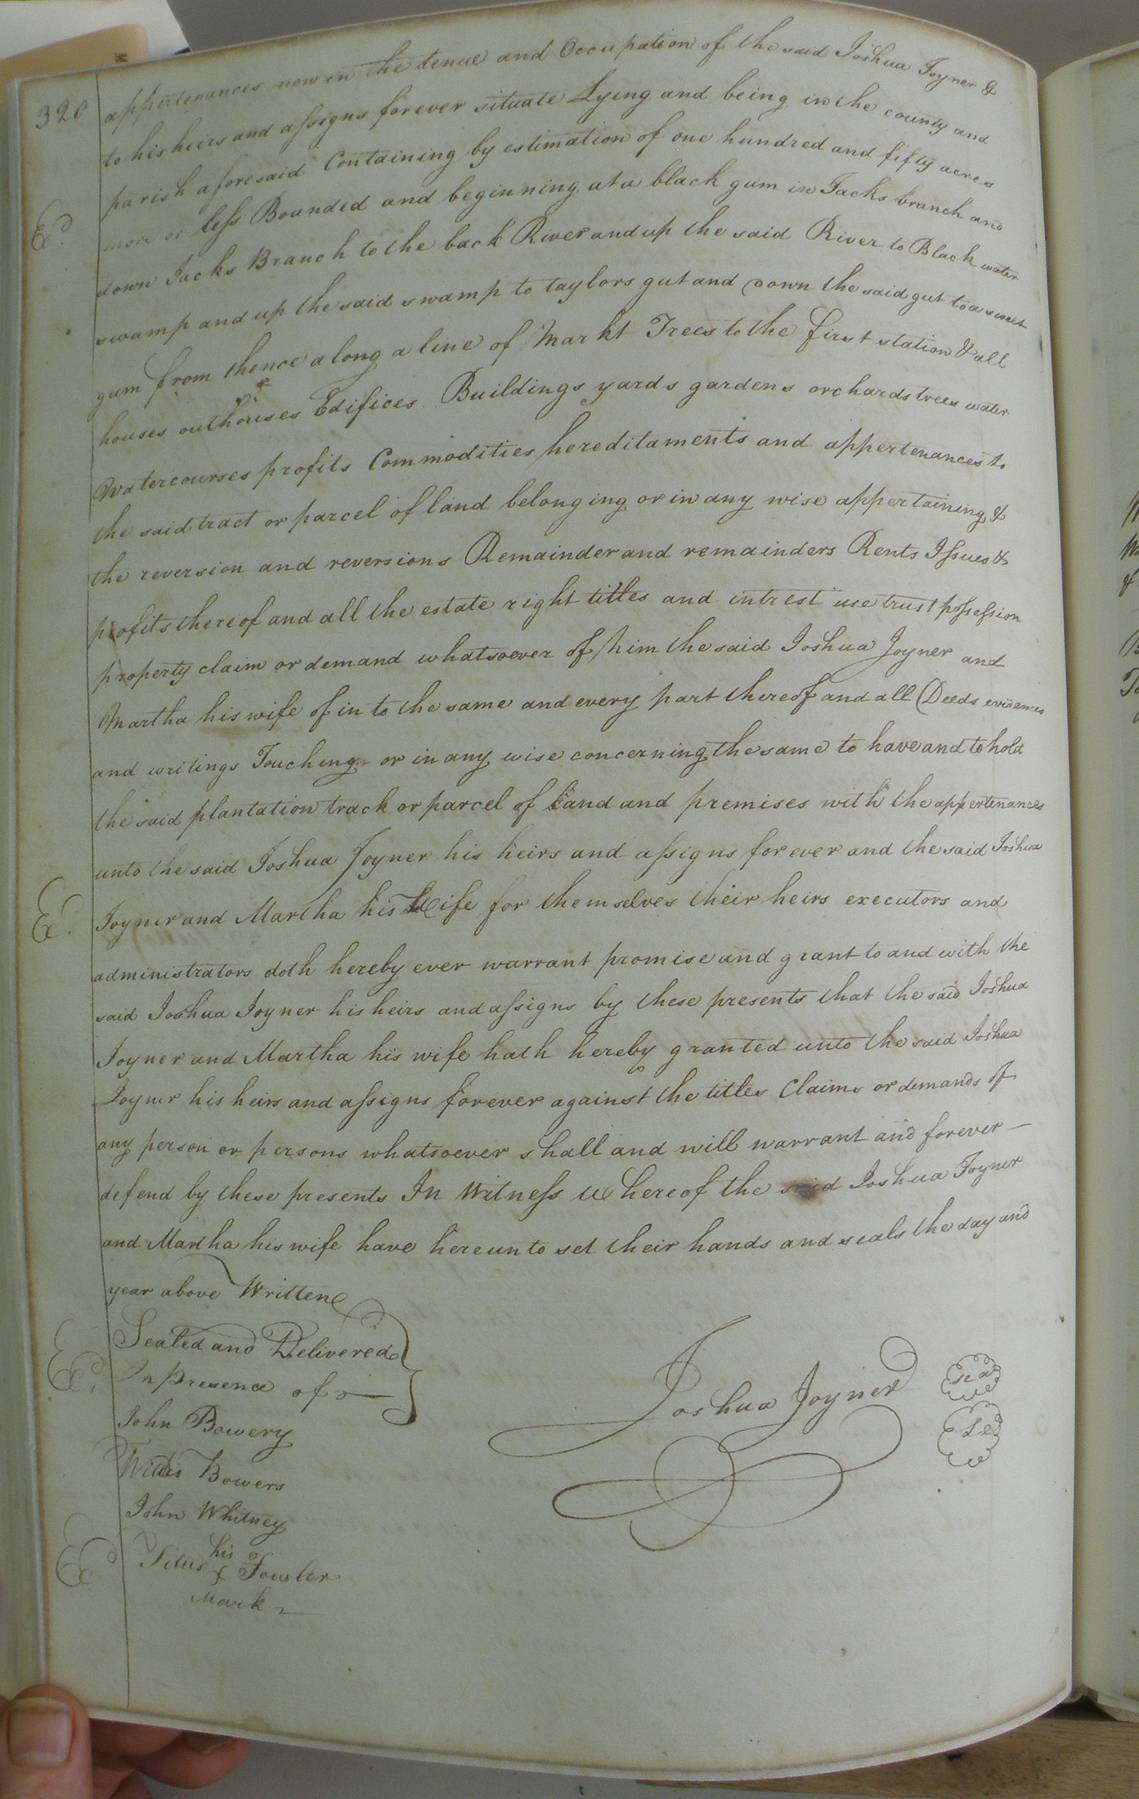 320
appertenances now in the tenue and Occupation of the said Joshua Joyner &
to his heirs and assigns forever situate Lying and being in the county and
parish aforesaid Containing by estimation of one hundred and fifty acres
more or less Bounded and beginning at a black gum in Jacks branch and
Ed.
down Jacks Branch to the back River and up the said River to Black water
swamp and up the said swamp to taylors gut and Down the said gut to a sweet
gum from thence along a line of Markt Trees to the first station & all
houses outhouses Edifices Buildings yards gardens orchards trees water
Watercourses profits Commodities hereditaments and appertenances to
the said tract or parcel of land belonging or in any wise appertaining &
the reversion and reversions Remainder and remainders Rents Issues &
profits thereof and all the estate right titles and intrest use trust possession
property claim or demand whatsoever of him the said Joshua Joyner and
Martha his wife of in to the same and every part thereof and all Deeds evidences
and writings Touching or in any wise concerning the same to have and to hold
the said plantation track or parcel of Land and premises with the appertenances
unto the said Joshua Joyner his heirs and assigns forever and the said Joshua
Ed.
Joyner and Martha his Wife for themselves their heirs executors and
administrators doth hereby ever warrant promise and grant to and with the
said Joshua Joyner his heirs and assigns by these presents that the said Joshua
Joyner and Martha his wife hath hereby granted unto the said Joshua
Joyner his heirs and assigns forever against the titles Claims or demands of
any person or persons whatsoever shall and will warrant and forever —
defend by these presents In Witness Whereof the said Joshua Joyner
and Martha his wife have hereunto set their hands and seals the day and
year above Written
Sealed and Delivered
In presence of
Ed.
Joshua Joyner seal
John Bowery
Willis Bowers
John Whitney
his
Titus x Fowler
Ed
Mark